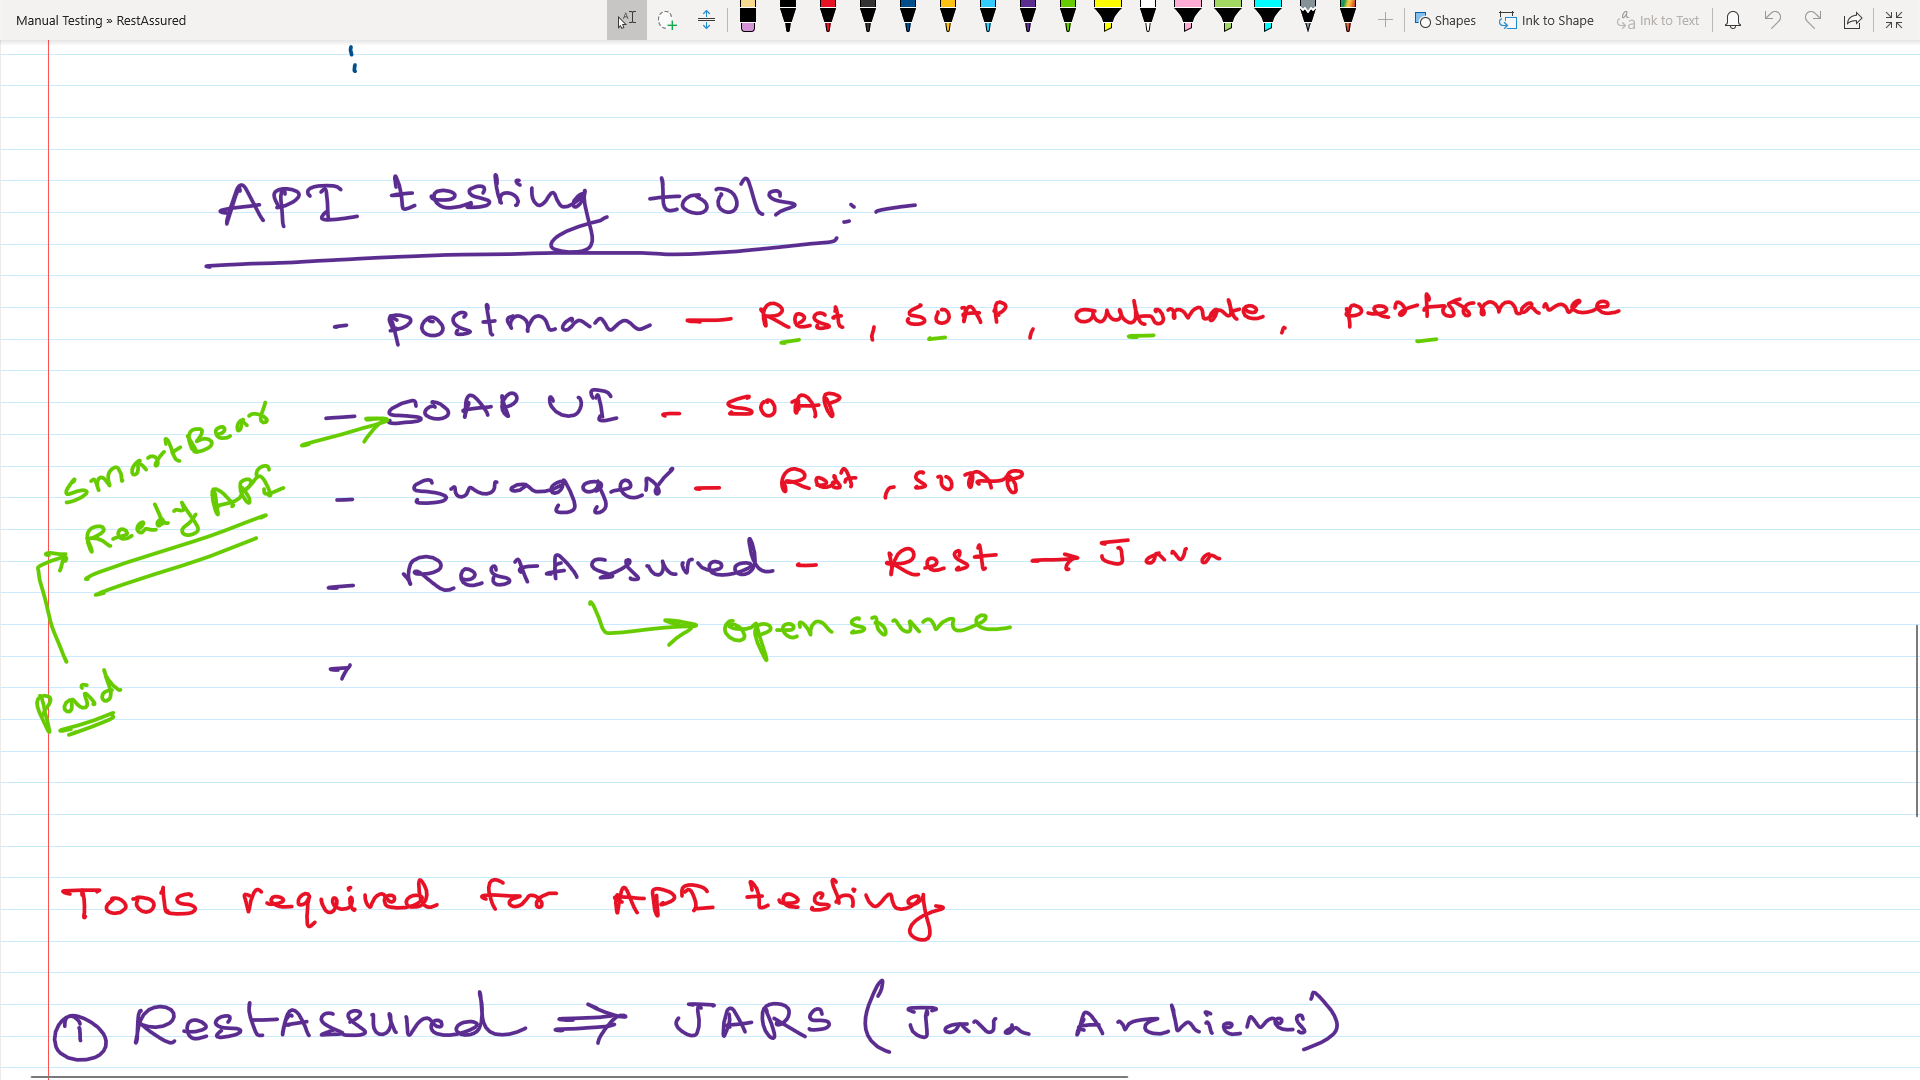 Manual Testing » RestAssured
Shapes Ink to Shape Ink to Text
API testing tools :-
- postman — Rest, SOAP, automate, performance
- SOAP UI - SOAP
SmartBear
Ready API
- Swagger - Rest, SOAP
- RestAssured - Rest → Java
open source
Paid
Tools required for API testing
① RestAssured ⇒ JARS (Java Archieves)